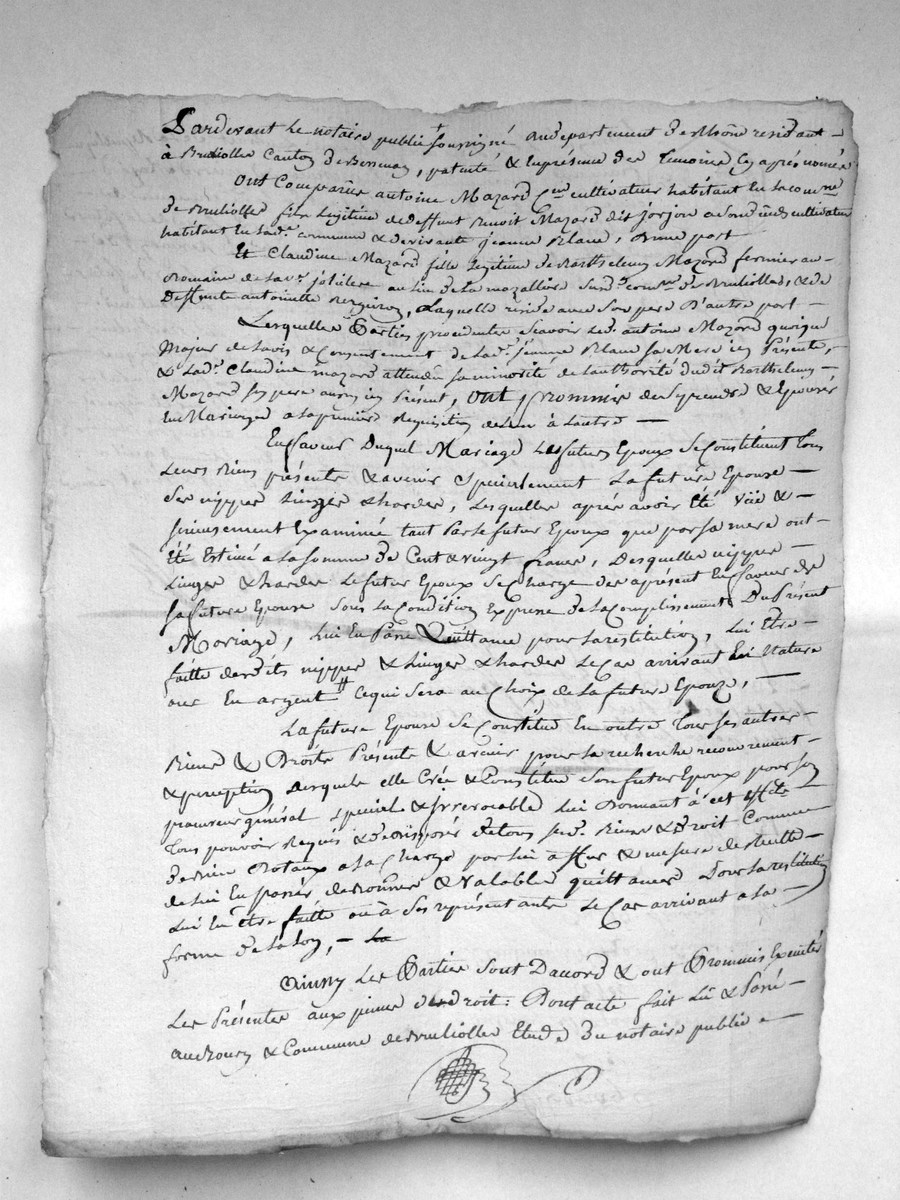 Pardevant le notaire public soussigné au departement de Rhône residant
à Brullolles Canton de Bessenay, patenté & En présence des temoins cy après nommés
ont Comparus antoine Mazard Cen cultivateur habitant En la comune
de Brulliolles fils Legitime de deffunt Benoit Mazard dit jorjon a son décès cultivateur
habitant En lade commune & de vivante jeanne Blanc, D'une part
Et Claudine Mazard fille legitime de Barthelemy Mazard fermier au
Domaine de la ve au lieu de la mazallière susde comune de Brulliolles, & de
Deffunte antoinette laquelle réside avec son pere D'autre part
Lesquelles Parties procedantes sçavoir led. antoine Mazard quoique
Majeur de lavis & Consentement de lade jeanne Blanc sa Mere icy Présente,
& lade Claudine mazard attendu sa minorité de lauthorité dudit Barthelemy
Mazard son pere aussy icy Présent, ont promis de se prendre & Epouser
En Mariage a la premiere Requisition de lun à lautre
En faveur Duquel Mariage les futurs Epoux se Constituent tous
leurs biens présents & avenir specialement la future Epouse
ses nippes linges & hardes, lesquelles après avoir Eté vüe &
serieusement Examiné tant par le futur Epoux que par sa mere ont
Eté Estimé a la somme de Cent & vingt francs, Desquelles nippes
linges & hardes le futur Epoux se Charge des apresent En faveur de
sa future Epouse sous la condition Expresse de la complissement Du Présent
Mariage, lui En Passe Quittance pour la restitution, lui Etre
faitte desdits nippes & linges & hardes le Cas arrivant En Nature
ou En argent ce qui sera au Choix de la future Epouze,
La future Epouse se Constitue En outre tous ses autres
Biens & Droits Présents & avenir pour la recherche recouvrement
& perception desquels elle Crée & Constitue son futur Epoux pour son
procureur général special & irrevocable lui Donnant à cet effet
tous pouvoir Requis & de disposer de tous sesd. Biens & Droit Comme
de biens Dotaux a la Charge par lui à fur & mesure de Recette
de lui En passer de bonnes & valables quittances Pour la restitution
lui En être faitte ou à ses représentants le Cas arrivant a la
forme de la loy,
Ainsy les Parties sont Daccord & ont Promis Executer
les Présentes aux peines de droit: Dont acte fait lû & Passé
au Bourg & Commune de Brulliolles Etude du notaire public